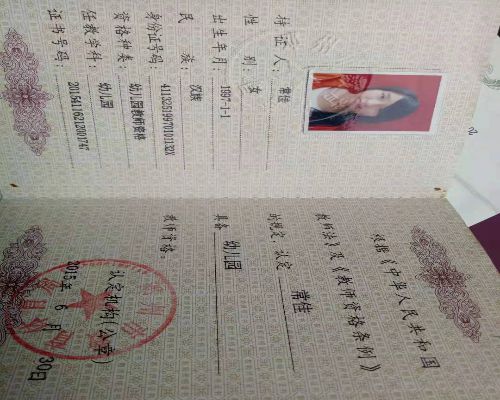 持证人：常佳
性别：女
出生年月：1997-1-1
民族：汉族
身份证号码：41132519970101132X
资格种类：幼儿园教师资格
任教学科：幼儿园
证书号码：20154116212001747
根据《中华人民共和国
教师法》及《教师资格条例》
的规定，认定 常佳
具备 幼儿园
教师资格。
认定机构（公章）
2015年 6月 30日